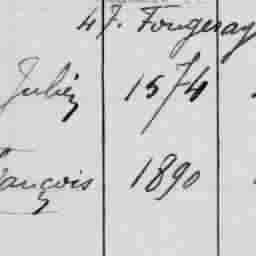 47. Fougeray
Julien 1574
François 1890